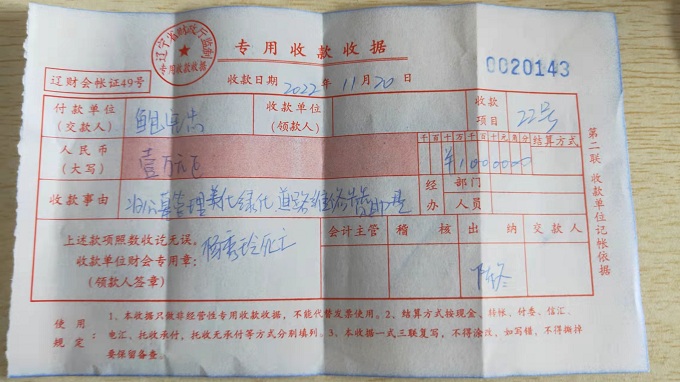 专用收款收据
辽宁省财政厅监制
专用收款收据
辽财会帐证49号
收款日期 2022年11月20日
0020143
付款单位
(交款人)
收款单位
(领款人)
收款
项目
22号
人民币
(大写)
壹万元
千百十万千百十元角分
结算方式
¥1000000
收款事由
公墓管理美化绿化道路维修赞助
经 部门
办 人员
上述款项照数收讫无误。
收款单位财会专用章:
(领款人签章)
杨秀玲死亡
会计主管
稽 核
出 纳
交款人
第二联 收款单位记帐依据
使用
规定:
1、本收据只做非经营性专用收款收据,不能代替发票使用。2、结算方式按现金、转帐、付委、信汇、
电汇、托收承付,托收无承付等方式分别填列。3、本收据一式三联复写,不得涂改,如写错,不得撕掉
要保留备查。